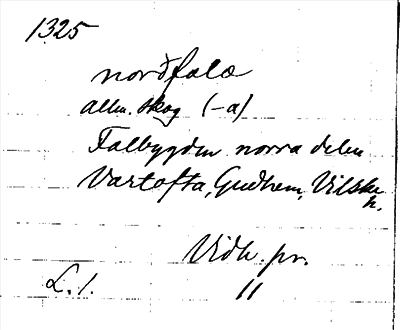 1325
nordfala
allm. skog (-a)
Falbygden norra delen
Vartofta, Gudhem, Vilske
h.
Vidh. pr.
L. 1. 11